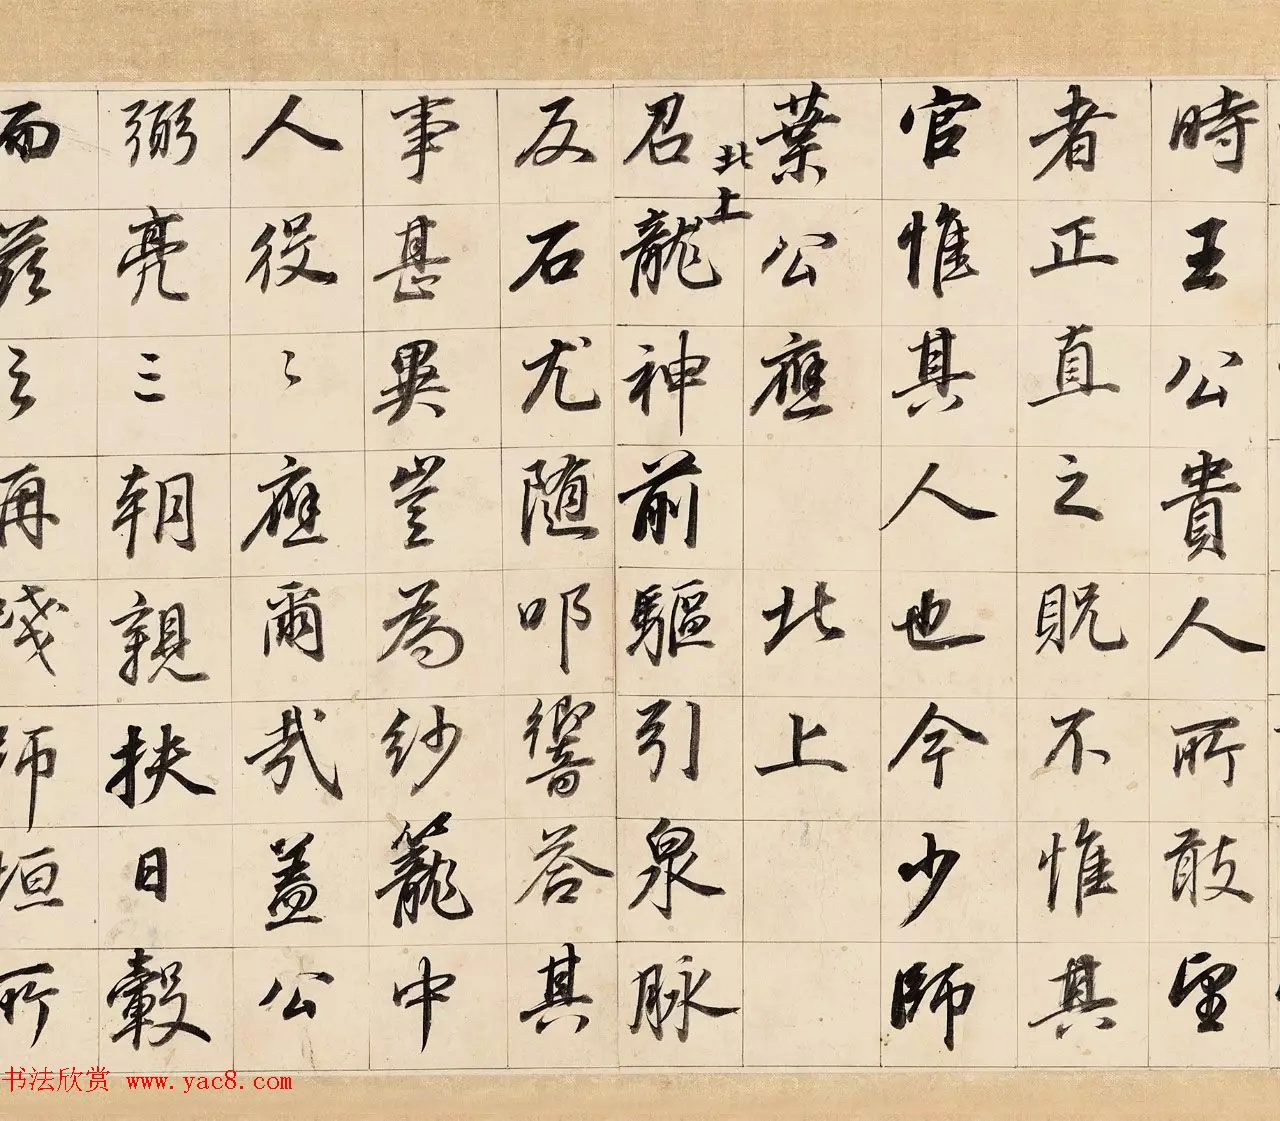 時王公貴人所敢望
者正直之貺不惟其
官惟其人也今少師
葉公應 北上
北上
召龍神前驅引泉脉
反石尤随叩響荅其
事甚異豈為紗籠中
人役〻應爾哉蓋公
弼亮三朝親挟日轂
而兹之再淺師垣所
书法欣赏 www.yac8.com